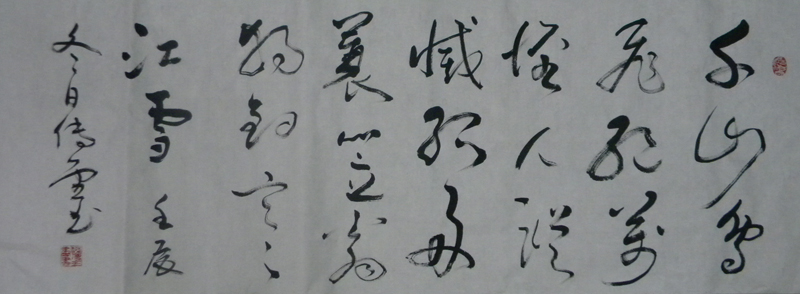 千山鳥
飛絕萬
徑人蹤
滅孤舟
蓑笠翁
獨釣寒
江雪 壬辰
冬日傳